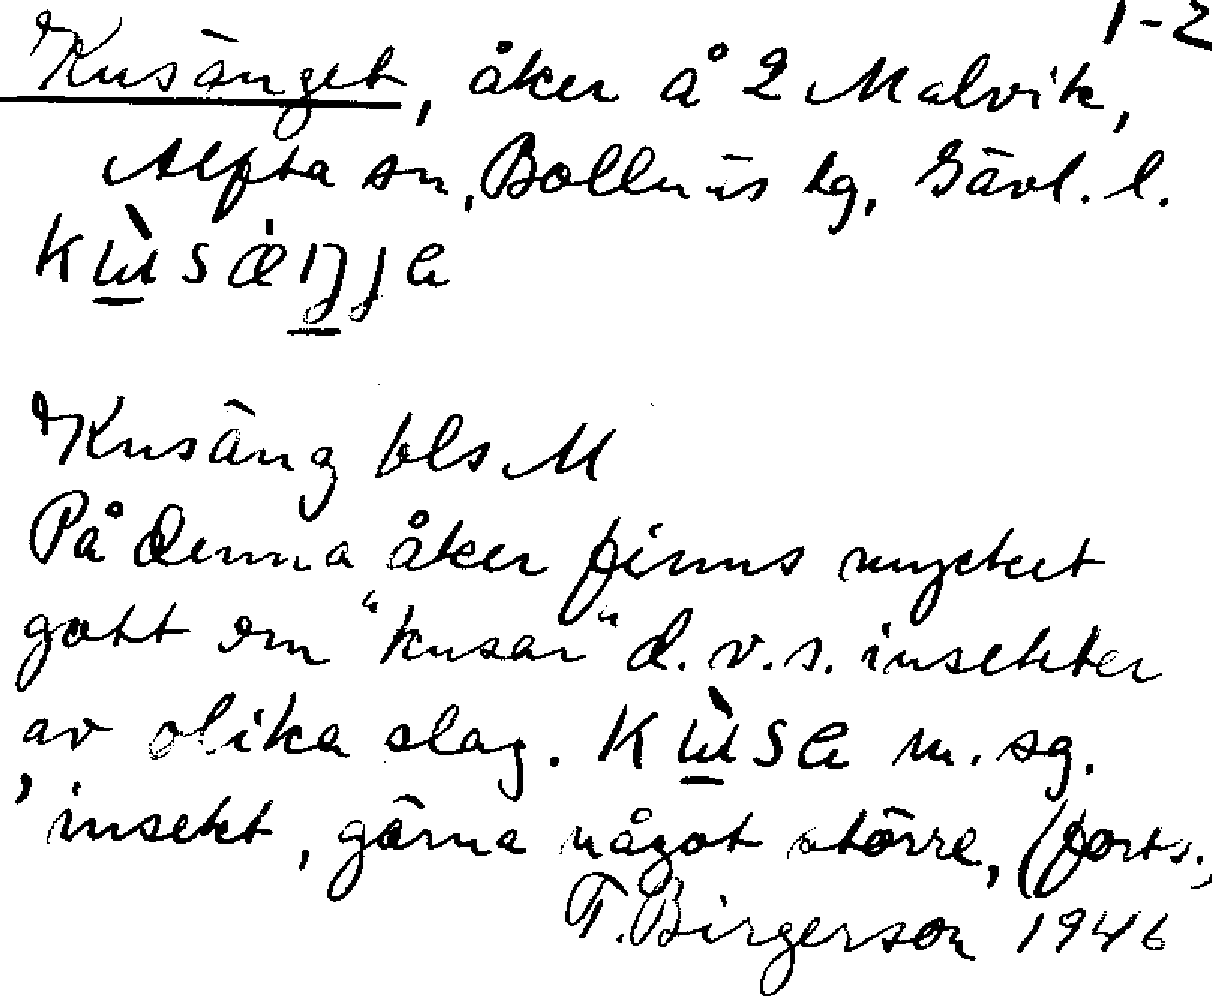 1-2
Kusänget, åker å 2 Malvik,
Alfta sn, Bollnäs tg, Gävl. l.
Kusänget
Kusäng bls M
På denna åker finns mycket
gott om "kusar" d.v.s. insekter
av olika slag. m. sg.
'insekt, gärna något större, (forts.,
T. Birgerson 1946